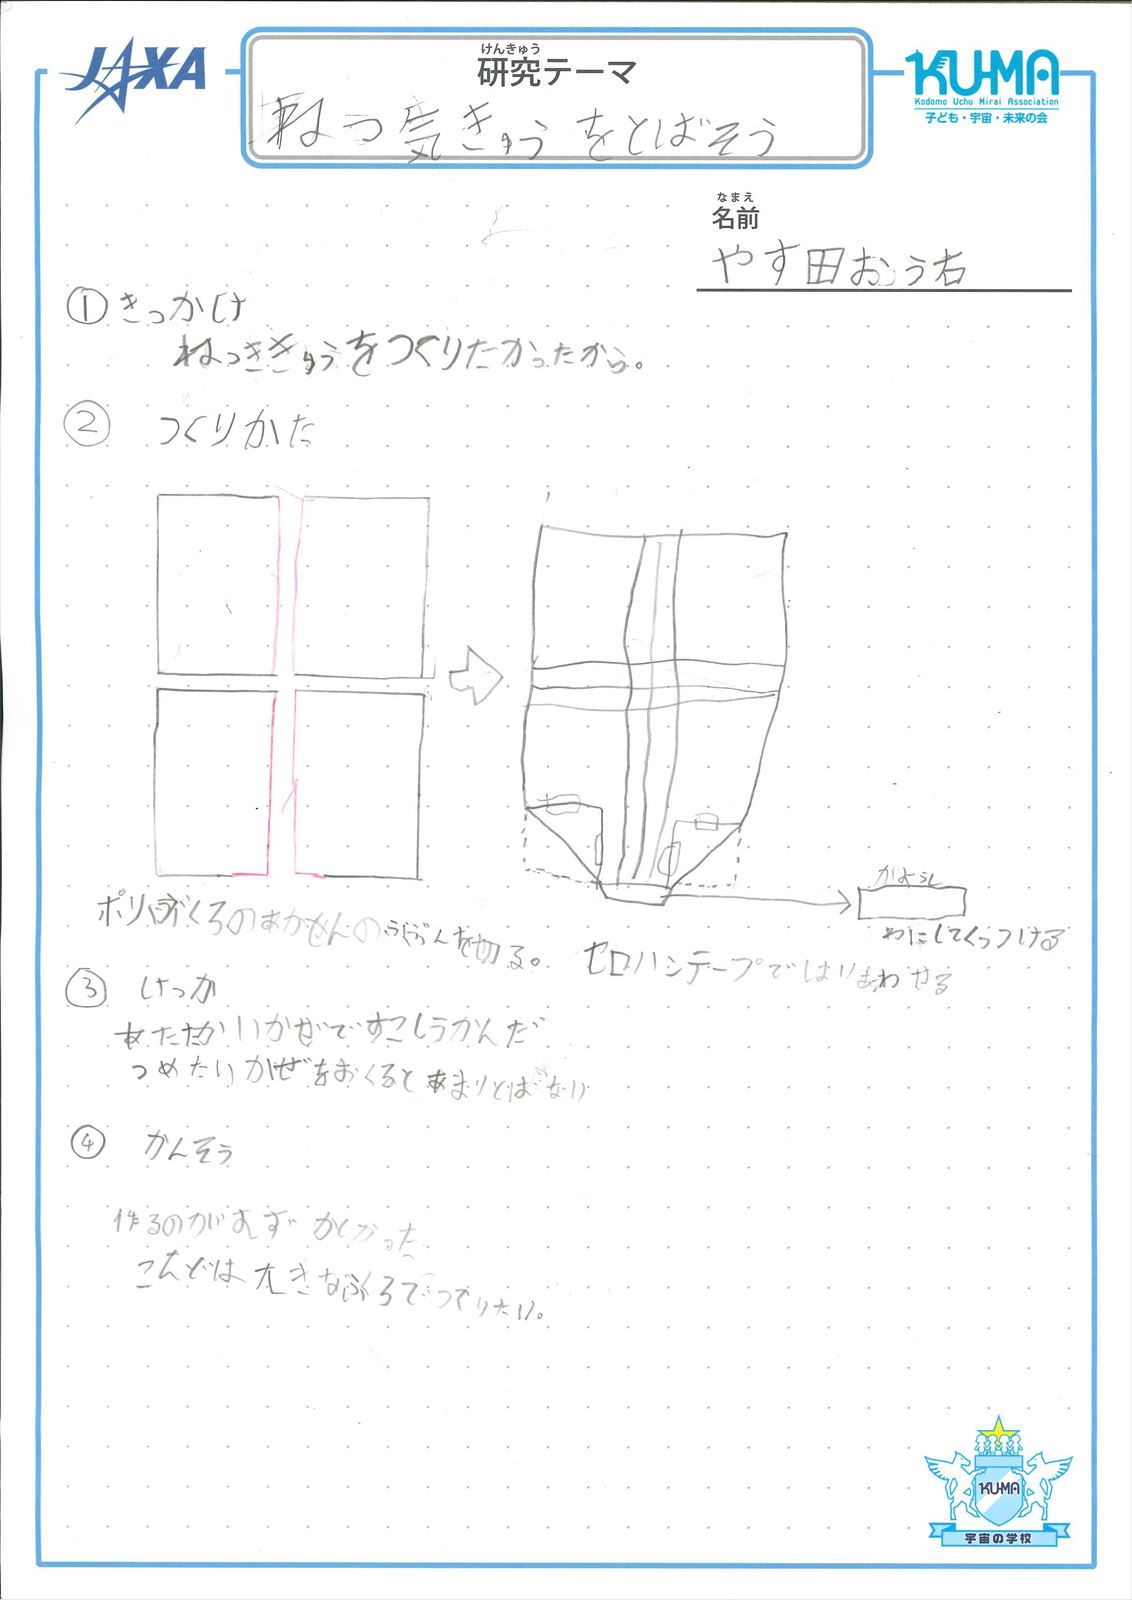 JAXA
けんきゅう
研究テーマ
KU-MA
Kodomo Uchu Mirai Association
子ども・宇宙・未来の会
ねつ気きゅうをとばそう
なまえ
名前
やす田おう右
①きっかけ
ねつききゅうをつくりたかったから。
② つくりかた
がようし
わにしてくっつける
ポリぶくろのあかせんのぶぶんを切る。
セロハンテープではりあわせる
③ けっか
あたたかいかぜですこしうかんだ
つめたいかぜをおくるとあまりとばない
④ かんそう
作るのがむずかしかった
こんどは大きなふくろでつくりたい。
KU-MA
宇宙の学校